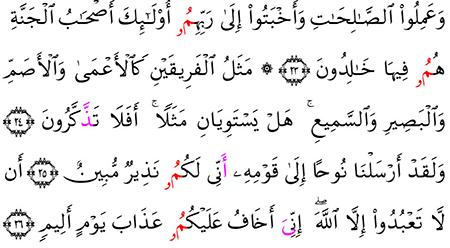 وَعَمِلُواْ ٱلصَّـٰلِحَـٰتِ وَأَخۡبَتُوٓاْ إِلَىٰ رَبِّهِمُۥٓ أُوْلَـٰٓئِكَ أَصۡحَـٰبُ ٱلۡجَنَّةِ
هُمُۥ فِيهَا خَـٰلِدُونَ ٢٣ ۞ مَثَلُ ٱلۡفَرِيقَيۡنِ كَٱلۡأَعۡمَىٰ وَٱلۡأَصَمِّ
وَٱلۡبَصِيرِ وَٱلسَّمِيعِۚ هَلۡ يَسۡتَوِيَانِ مَثَلًاۚ أَفَلَا تَذَّكَّرُونَ ٢٤
وَلَقَدۡ أَرۡسَلۡنَا نُوحًا إِلَىٰ قَوۡمِهِۦٓ أَنِّى لَكُمُۥ نَذِيرٌ مُّبِينٌ ٢٥ أَن
لَّا تَعۡبُدُوٓاْ إِلَّا ٱللَّهَۖ إِنِّىَ أَخَافُ عَلَيۡكُمُۥ عَذَابَ يَوۡمٍ أَلِيمٍ ٢٦